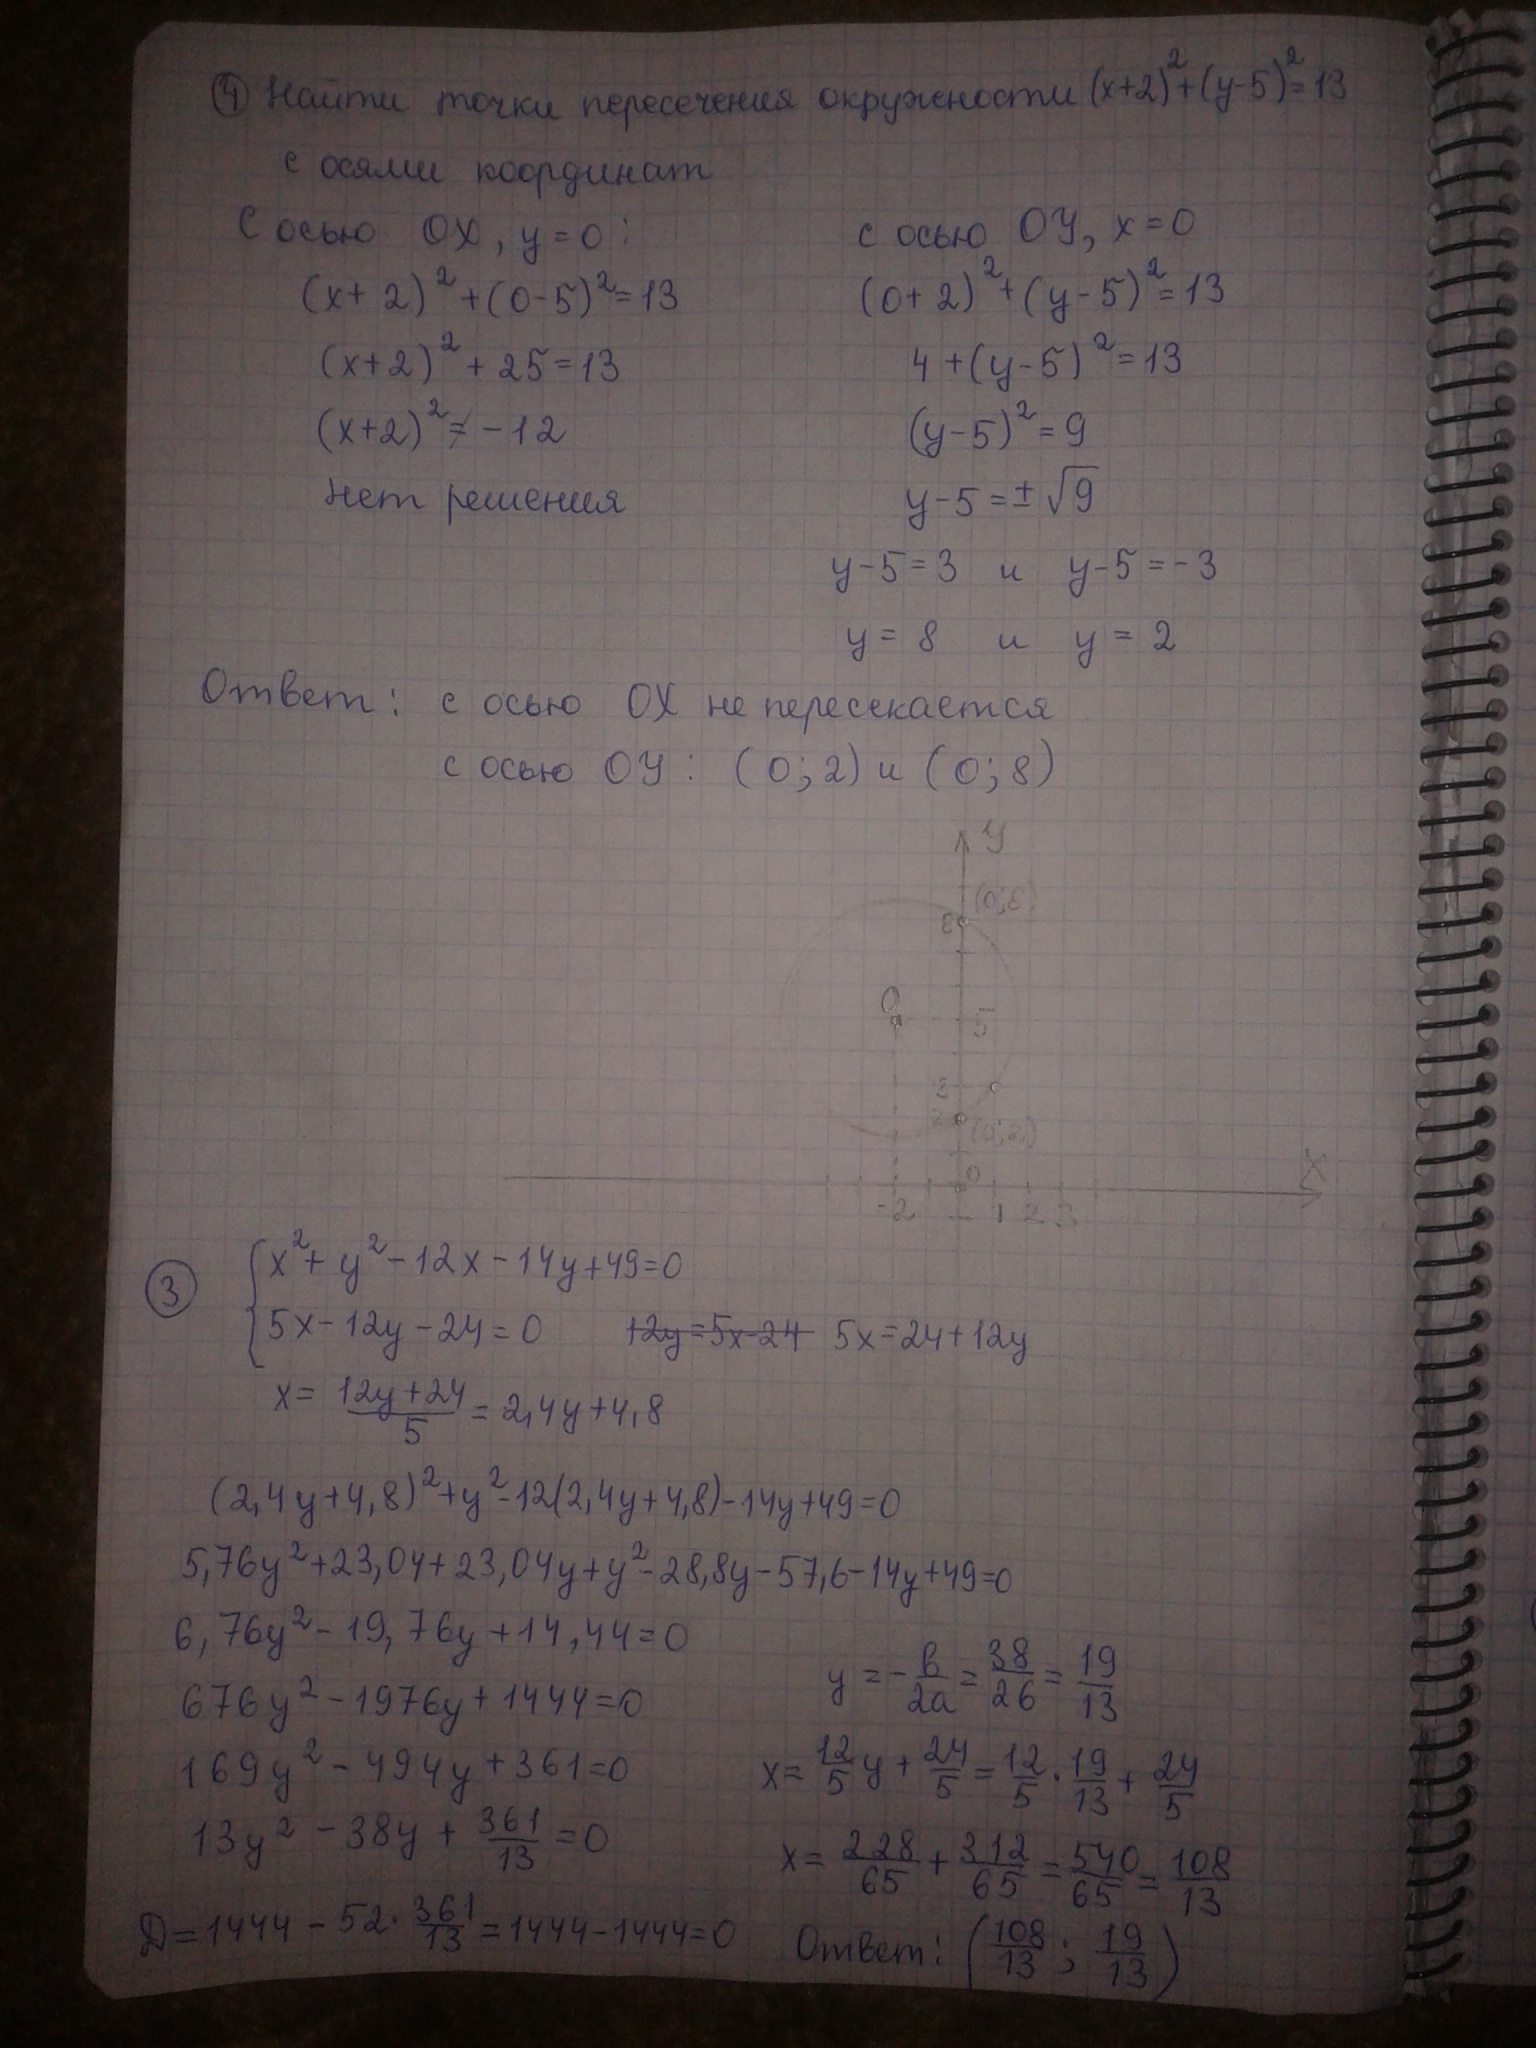 ④ Найти точки пересечения окружности (x+2)²+(y-5)²=13
с осями координат
С осью OX, y=0:
(x+2)²+(0-5)²=13
(x+2)²+25=13
(x+2)²≠-12
Нет решения
с осью OY, x=0
(0+2)²+(y-5)²=13
4+(y-5)²=13
(y-5)²=9
y-5=±√9
y-5=3 и y-5=-3
y=8 и y=2
Ответ: с осью OX не пересекается
с осью OY: (0;2) и (0;8)
y
(0;8)
8
O
5
3
2
(0;2)
0
X
-2 1 2 3
③ {x²+y²-12x-14y+49=0
5x-12y-24=0 12y=5x-24 5x=24+12y
x=(12y+24)/5=2,4y+4,8
(2,4y+4,8)²+y²-12(2,4y+4,8)-14y+49=0
5,76y²+23,04+23,04y+y²-28,8y-57,6-14y+49=0
6,76y²-19,76y+14,44=0
676y²-1976y+1444=0
169y²-494y+361=0
13y²-38y+361/13=0
D=1444-52·361/13=1444-1444=0
y=-в/2a=38/26=19/13
x=12/5y+24/5=12/5·19/13+24/5
x=228/65+312/65=540/65=108/13
Ответ: (108/13; 19/13)